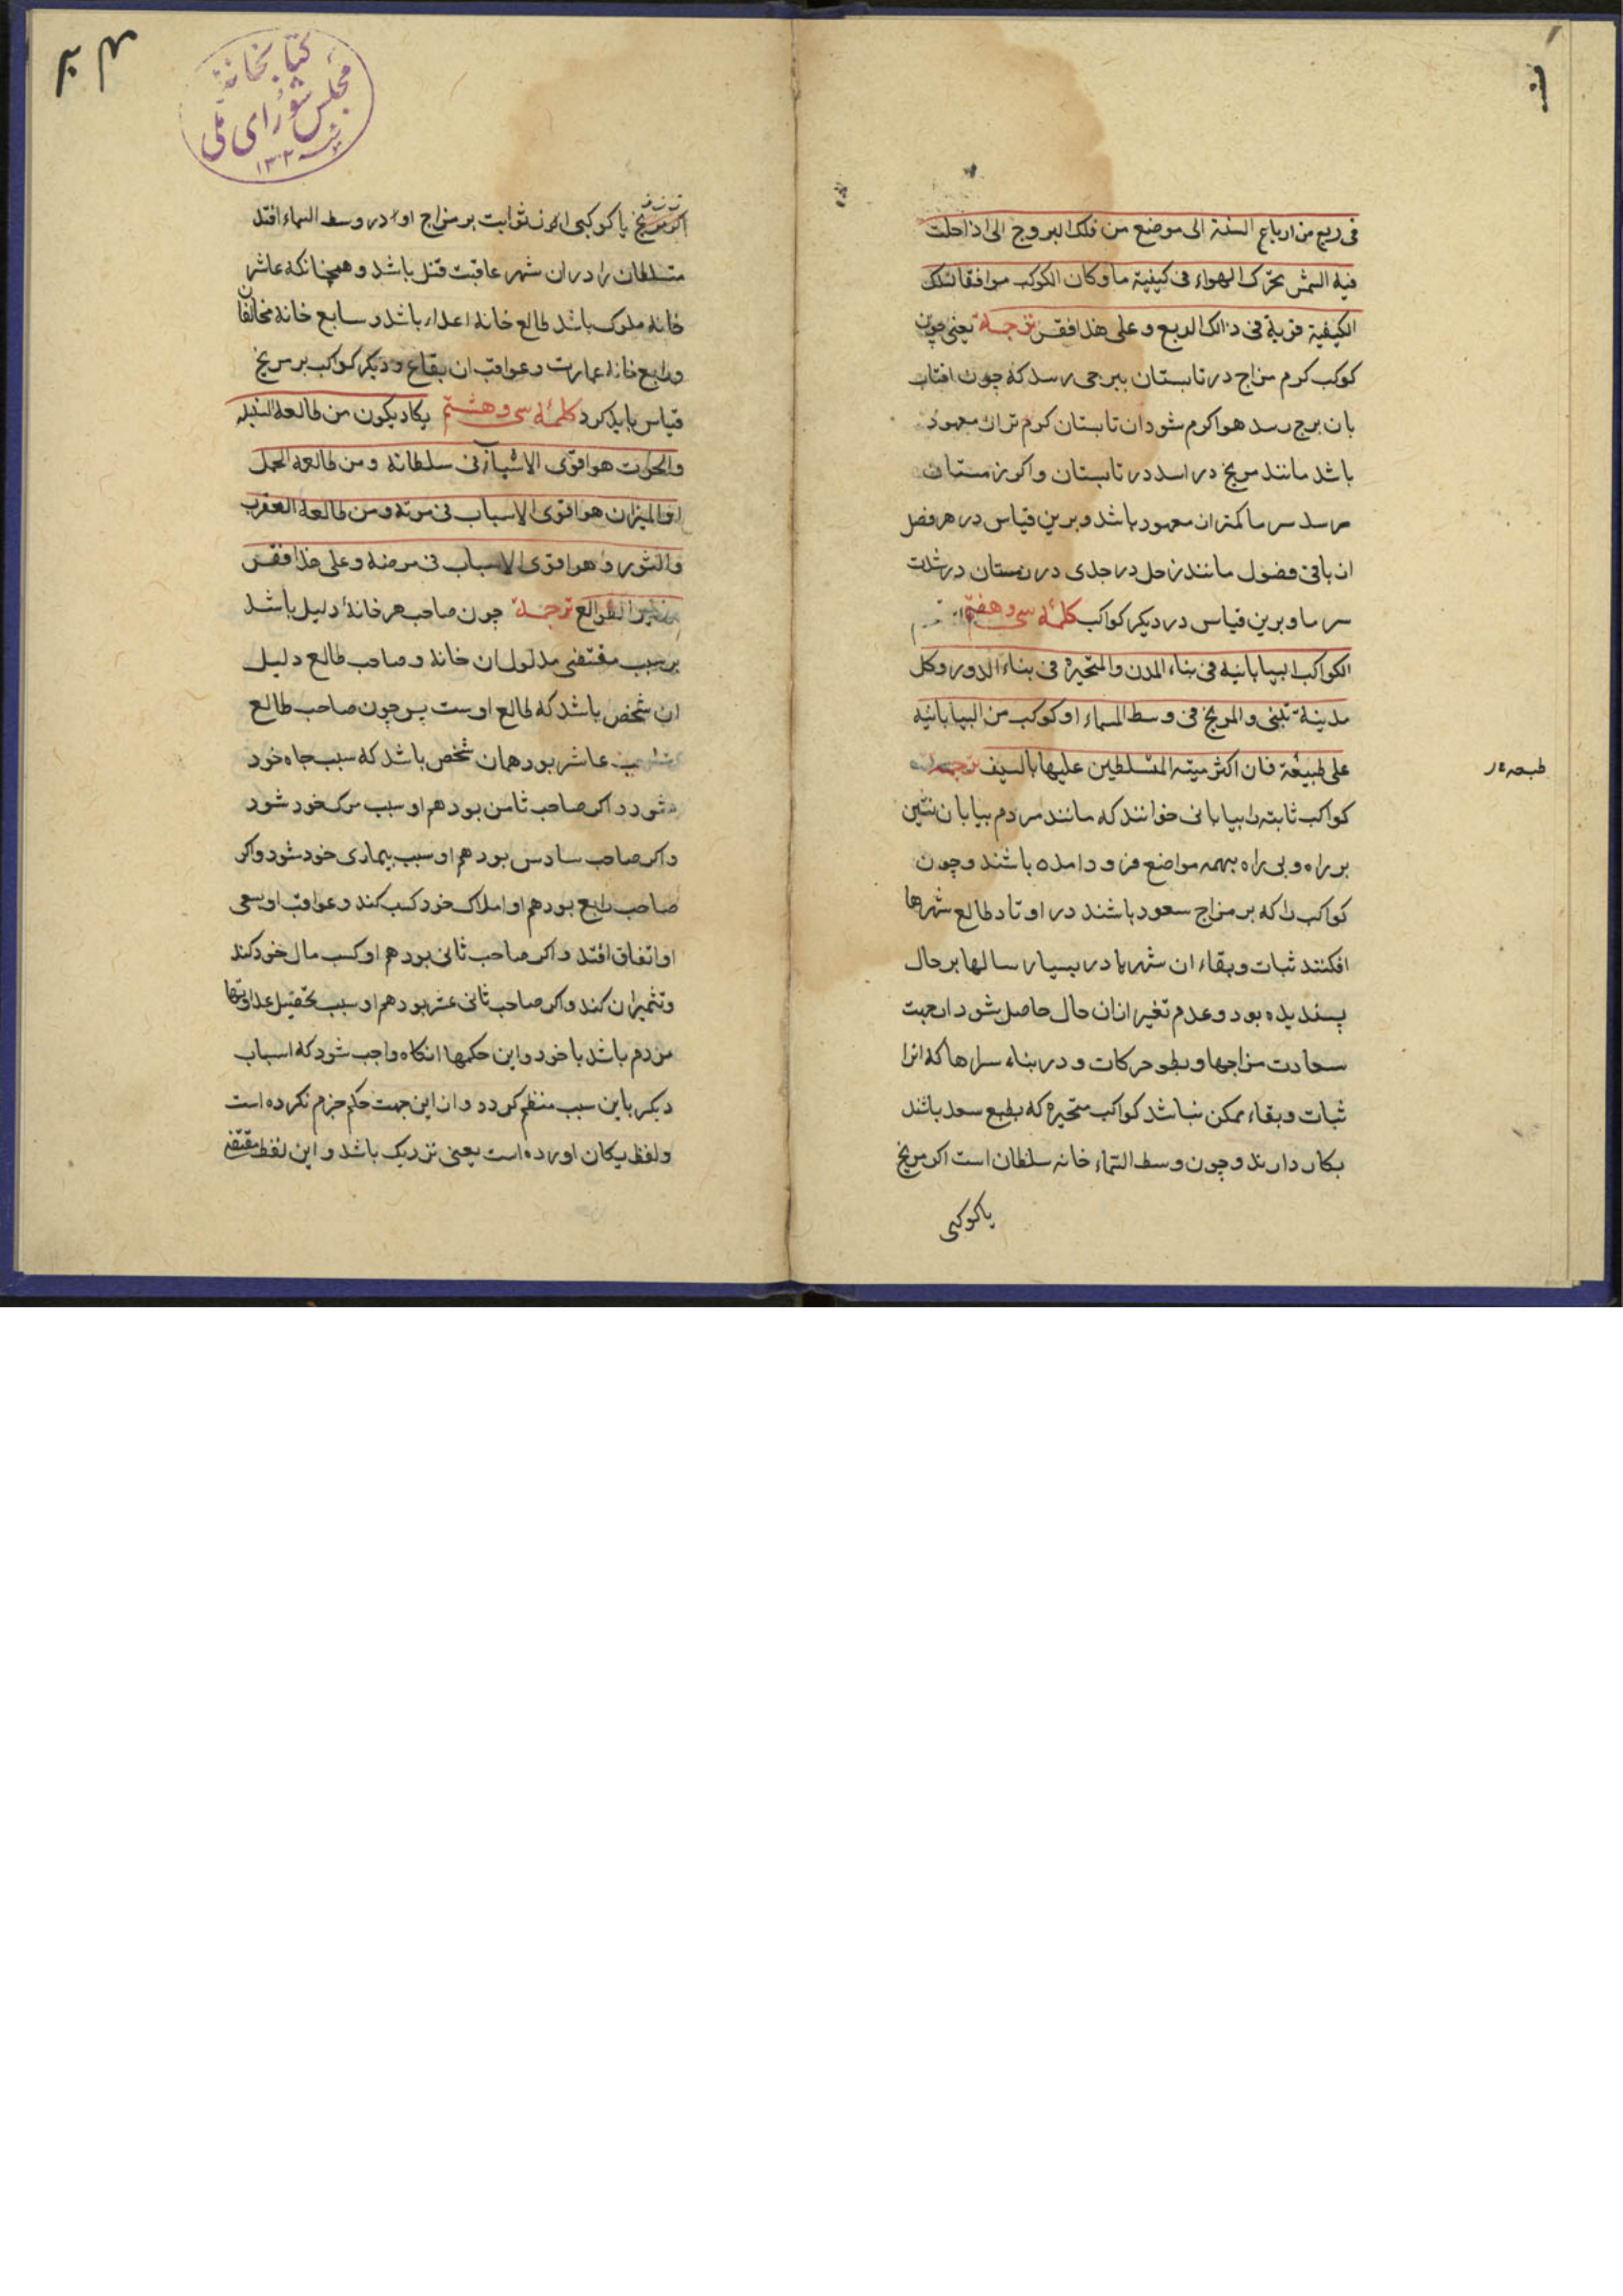 فی ربع من ارباع السنة الی موضع من فلک البروج الی اذا حلت
فیه الشمس تحرک الهواء فی کیفیة ما و کان الکوکب موافقا لتلک
الکیفیة قویة فی ذالک الربع و علی هذا فقس ترجمة یعنی چون
کوکب کرم مزاج در تابستان ببرجی رسد که چون افتاب
بان برج رسد هوا کرم شود ان تابستان کرم تر از معهود
باشد مانند مریخ در اسد در تابستان و اکر زمستان
رسد سرما کمتر از معهود باشد و برین قیاس در هر فصل
از باقی فضول مانند زحل در جدی در زمستان در شدت
سرما و برین قیاس در دیکر کواکب کلمهٔ سی و هفتم
الکواکب البیابانیه فی بناء المدن والمتحیرة فی بناء الدور و کل
مدینة تبنی و المریخ فی وسط السماء او کوکب من البیابانیه
علی طبیعته فان اکثر میتة المتسلطین علیها بالسیف ترجمه
کواکب ثابته را بیابانی خوانند که مانند مردم بیابان نشین
بر راه و بی راه بهمه مواضع فرود امده باشند و چون
کواکب را که بر مزاج سعود باشند در اوتاد طالع شهرها
افکنند ثبات و بقاء ان شهرها در بسیار سالها بر حال
پسندیده بود و عدم تغیر از ان حال حاصل شود از جهت
سعادت مزاجها و بطو حرکات و در بناء سراها که انرا
ثبات و بقاء ممکن نباشد کواکب متحیره که بطبع سعد باشند
بکار دارند و چون وسط السماء خانه سلطان است اکر مریخ
یا کوکبی
طبعه
کتابخانهٔ
مجلس شورای ملی
۱۳۰۲
اکر مریخ یا کوکبی از ثوابت بر مزاج او در وسط السماء افتد
متسلطان را در ان شهر عاقبت قتل باشد و همچنانکه عاشر
خانه ملوک باشد طالع خانه اعداء باشد و سابع خانه مخالفان
و رابع خانه عمارت و عواقب ان بقاع و دیکر کواکب بر مریخ
قیاس باید کرد کلمهٔ سی و هشتم یکاد یکون من طالعه السنبله
والحوت هو اقوی الاسباب فی سلطانه و من طالعه الحمل
او المیزان هو اقوی الاسباب فی موته و من طالعه العقرب
والثور و هو اقوی الاسباب فی مرضه و علی هذا فقس
الطوالع ترجمة چون صاحب هر خانهٔ دلیل باشد
بر حسب مقتضی مدلول ان خانه و صاحب طالع دلیل
ان شخص باشد که طالع اوست پس چون صاحب طالع
صاحب عاشر بود همان شخص باشد که سبب جاه خود
شود و اکر صاحب ثامن بود هم او سبب مرک خود شود
و اکر صاحب سادس بود هم او سبب بیماری خود شود و اکر
صاحب رابع بود هم او املاک خود کسب کند و عواقب او بسعی
او اتفاق افتد و اکر صاحب ثانی بود هم او کسب مال خود کند
و تثمیر ان کند و اکر صاحب ثانی عشر بود هم او سبب تحصیل عداوتها
مردم باشد با خود و این حکمها انکاه واجب شود که اسباب
دیکر باین سبب منظم کردد و از این جهت حکم جزم نکرده است
و لفظ یکان اورده است یعنی نزدیک باشد و این لفظ مقتضی